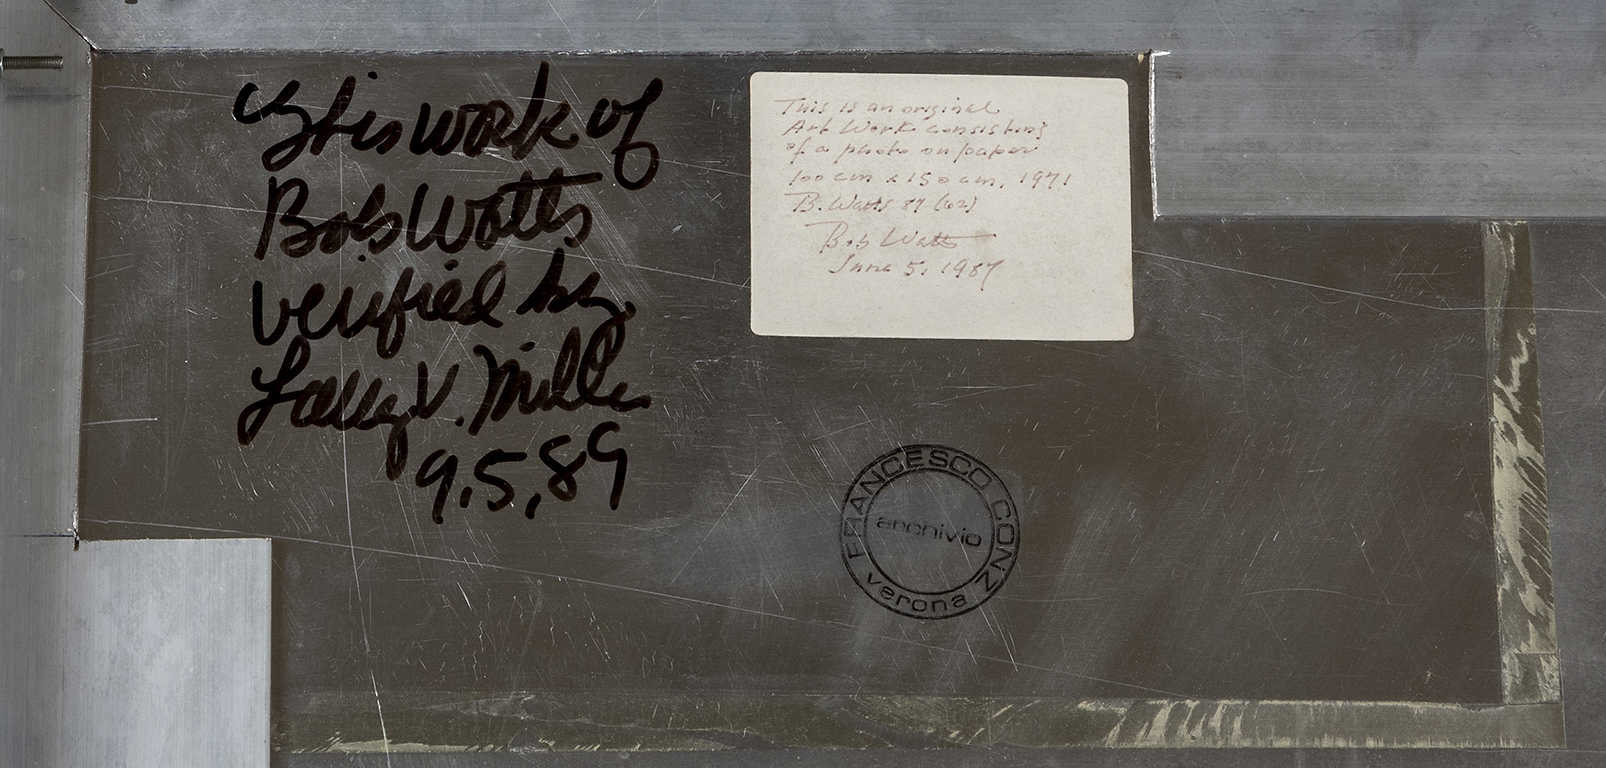 work of
Bob Watts
verified by
Larry V. Miller
9.5,89
This is an original
Art Work consisting
of a photo on paper
100 cm x 150 cm, 1971
B. Watts 87 (62)
Bob Watts
June 5, 1987
FRANCESCO CONZ
archivio
verona